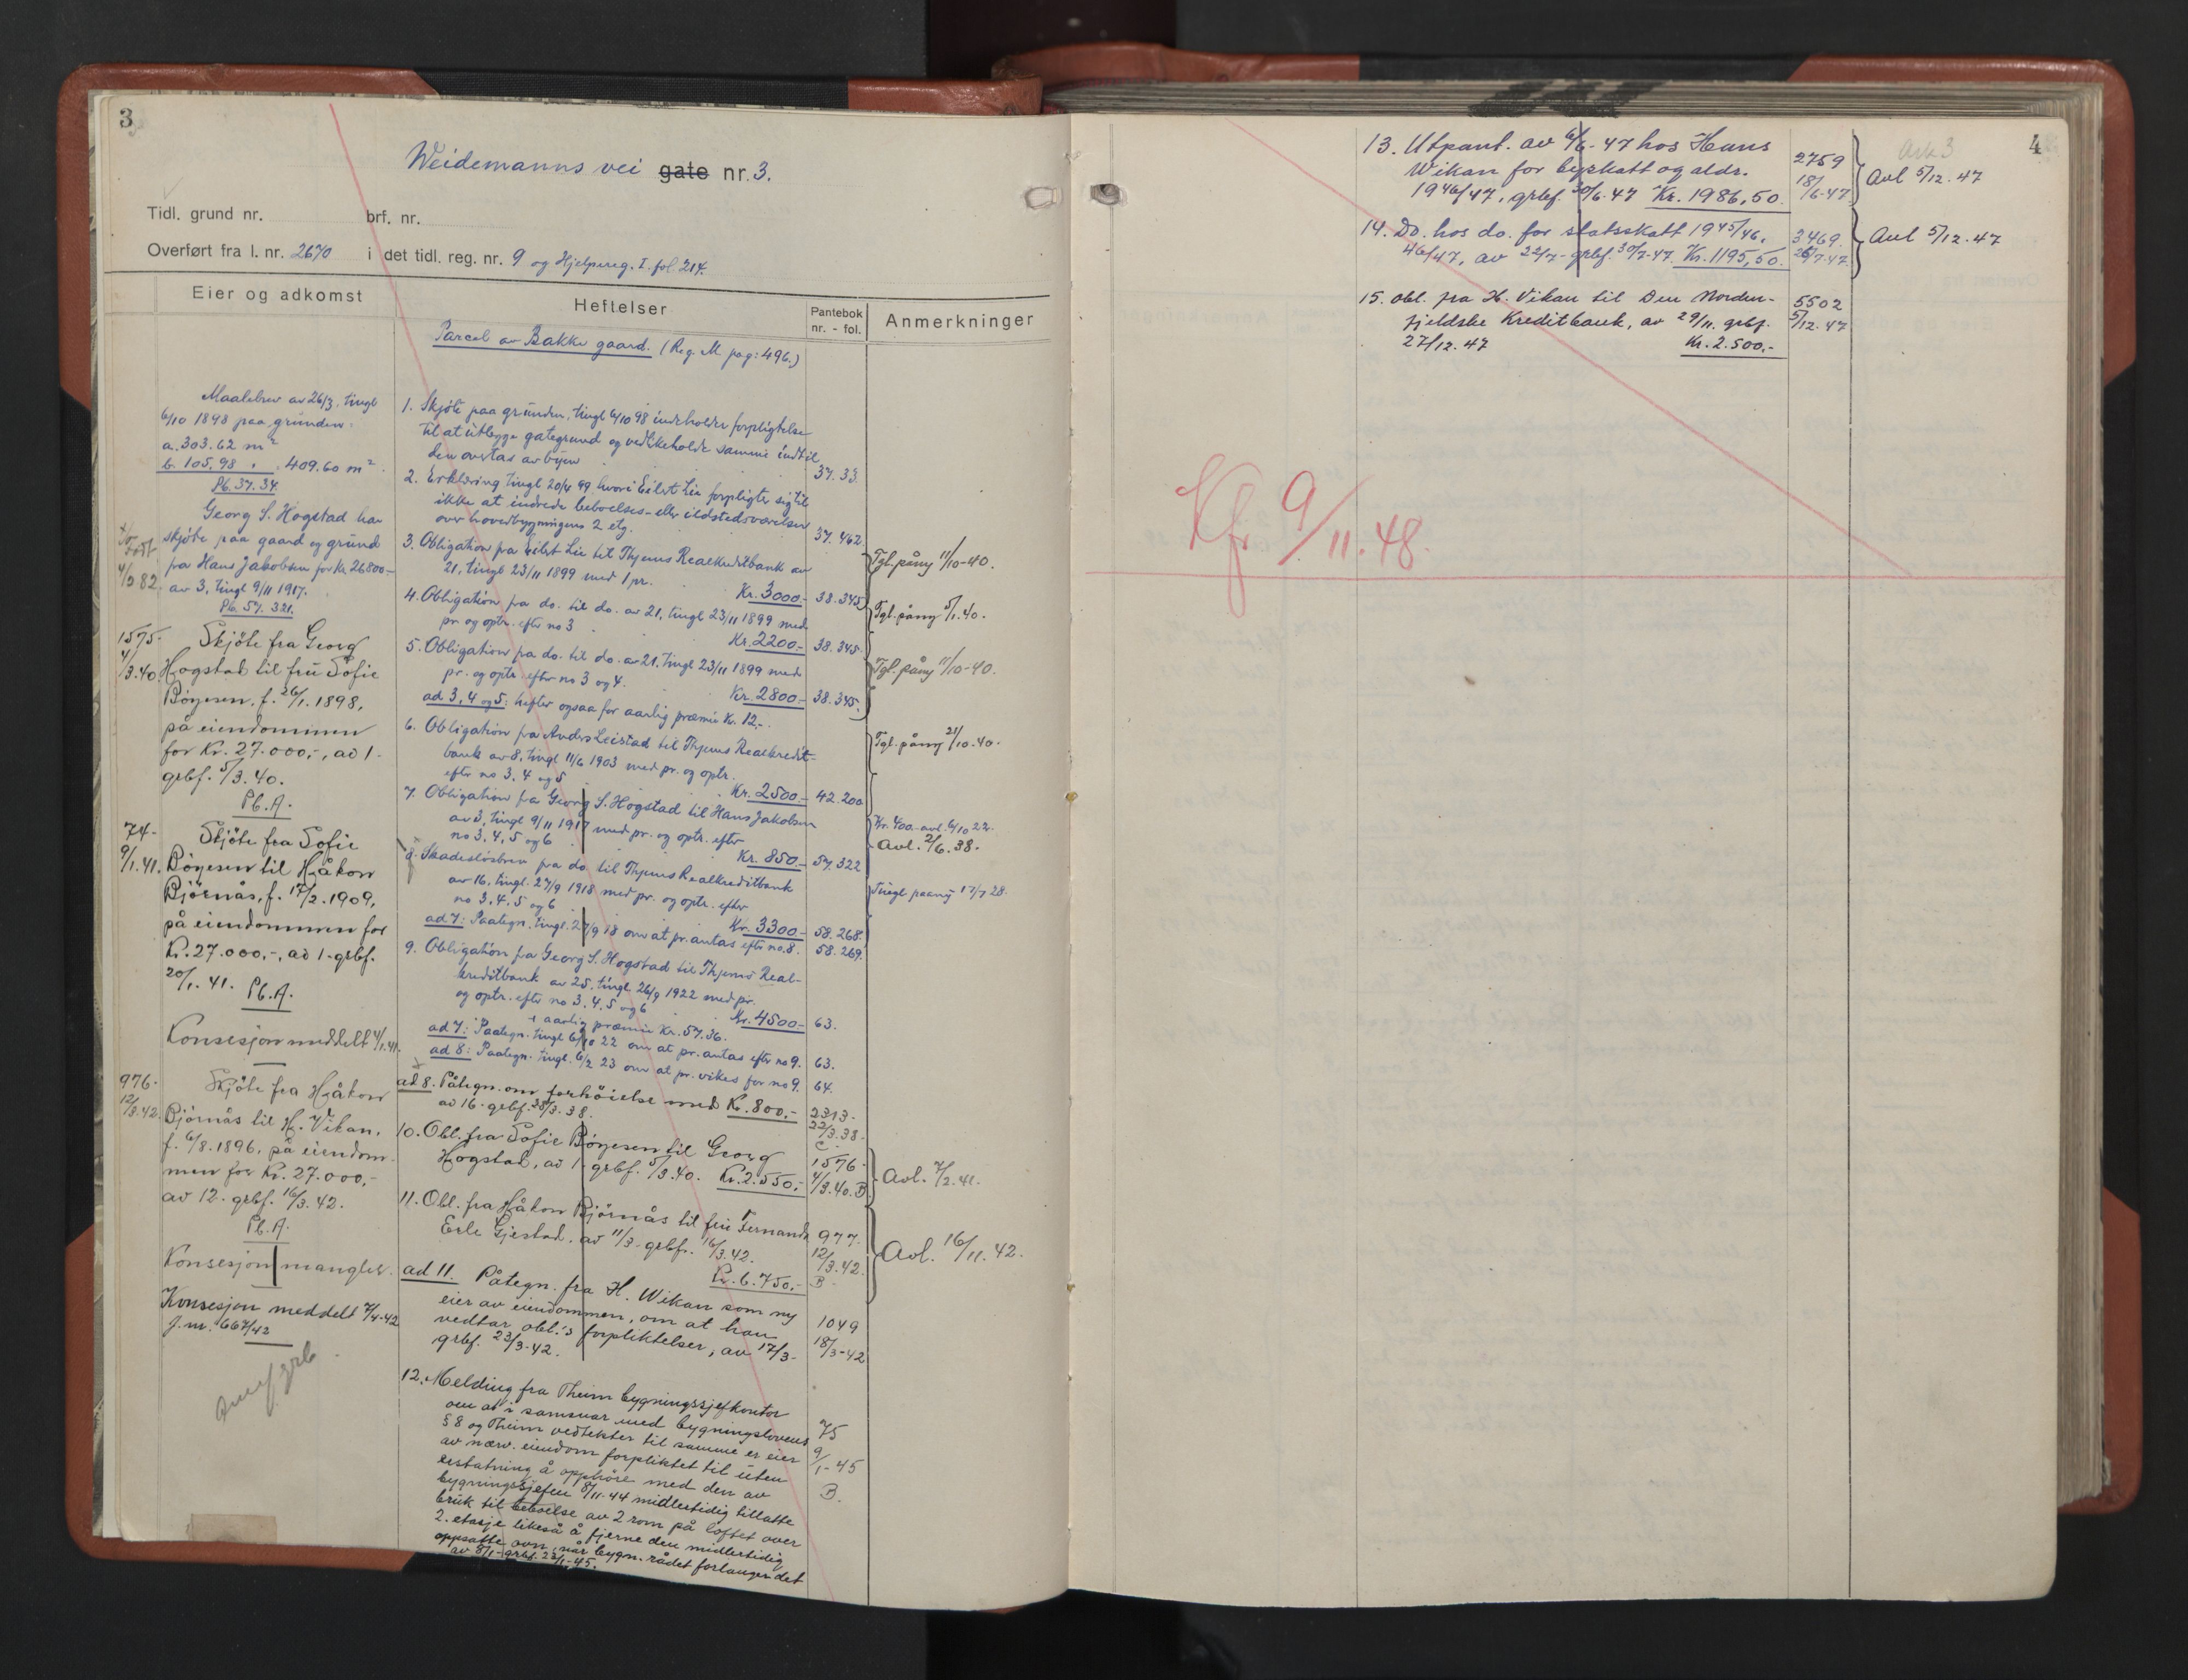 3
Weidemanns vei gate nr. 3.
Tidl. grund nr. brf. nr.
Overført fra l. nr. 2670 i det tidl. reg. nr. 9 og Hjelpereg. I. fol 214.
Eier og adkomst
Heftelser
Pantebok
nr. - fol.
Anmerkninger
Parcel av Bakke gaard. (Reg. M pag: 496.)
Maalebrev av 26/3, tingl
6/10 1898 paa grunden:
a. 303.62 m²
b. 105.98 " . 409.60 m².
Pb. 37. 34.
Georg S. Hogstad har
skjöte paa gaard og grund
fra Hans Jakobsen for Kr. 26800.-
av 3, tingl 9/11 1917.
Pb. 57. 321.
født
4/3 82.
1575-
4/3.40.
Skjöte fra Georg
Hogstad til fru Sofie
Böyesen, f. 26/1. 1898,
på eiendommen
for Kr. 27.000,-, av 1-
grbf. 5/3. 40.
Pb. A.
74-
9/1. 41.
Skjöte fra Sofie
Böyesen til Håkon
Björnås, f. 17/2. 1909,
på eiendommen for
Kr. 27.000,-, av 1- grbf.
20/1. 41. Pb. A.
Konsesjon meddelt 4/1. 41.
976-
12/3. 42.
Skjöte fra Håkon
Björnås til H. Vikan,
f. 6/8. 1896, på eiendom-
men for Kr. 27.000,-
av 12- grbf. 16/3. 42.
Pb. A.
Konsesjon mangler.
Konsesjon meddelt 7/4-42
J. nr. 667/42
1. Skjöte paa grunden, tingl 6/10 98 indeholder forpligtelse
til at utlegge gategrund og vedlikeholde samme indtil
den overtas av byen
37. 33.
2. Erklæring tingl 20/4 99 hvori Eilert Lie forpligter sig til
ikke at indrede beboelses- eller ildstedsværelser
over hovedbygningens 2 etg.
37. 462.
3. Obligation fra Eilert Lie til Thjems Realkreditbank av
21, tingl 23/11 1899 med 1 pr.
Kr. 3000.- 38. 345
Tgl. påny 11/10-40.
4. Obligation fra do. til do. av 21, tingl 23/11 1899 med
pr. og optr. efter no 3
Kr. 2200.- 38. 345.
Tgl. påny 5/1. 40.
5. Obligation fra do. til do. av 21, tingl 23/11 1899 med
pr. og optr. efter no 3 og 4.
Kr. 2800.- 38. 345.
Tgl. påny 11/10-40.
ad 3, 4 og 5: hefter ogsaa for aarlig præmie Kr. 12.-.
6. Obligation fra Anders Leistad til Thjems Realkredit-
bank av 8, tingl 11/6 1903 med pr. og optr.
efter no 3, 4 og 5
Kr. 2500.- 42. 200
Tgl. påny 21/10. 40.
7. Obligation fra Georg S. Hogstad til Hans Jakobsen
av 3, tingl 9/11 1917 med pr. og optr. efter
no 3, 4, 5 og 6
Kr. 850.- 57. 322
Kr. 400.- avl. 6/10 22.
Avl. 2/6. 38.
8. Skadeslösbrev fra do til Thjems Realkreditbank
av 16, tingl. 27/9 1918 med pr. og optr. efter
no 3, 4, 5 og 6
Kr. 3300.- 58. 268.
Tingl paany 17/7 28.
ad 7: Paategn. tingl. 27/9 18 om at pr. antas efter no 8. 58. 269.
9. Obligation fra Georg S. Hogstad til Thjems Real-
kreditbank av 25, tingl 26/9 1922 med pr.
og optr. efter no 3, 4, 5 og 6
Kr. 4500.- 63.
+ aarlig præmie Kr. 57.36.
ad 7: Paategn. tingl 6/10 22 om at pr. antas efter no 9. 63.
ad 8: Paategn. tingl. 6/2 23 om at pr. vikes for no 9. 64.
ad 8. Påtegn. om forhöielse med Kr. 800,- 2313-
av 16- grbf. 28/3. 38.
22/3. 38-
C.
10. Obl. fra Sofie Böyesen til Georg
Hogstad, av 1- grbf. 5/3. 40. Kr. 2.550,-
1576-
4/3. 40. B
Avl. 7/2. 41.
11. Obl. fra Håkon Björnås til frü Fernanda
Erle Gjestad, av 11/3- grbf. 16/3. 42.
Kr. 6.750,-
977.
12/3. 42.
B
Avl. 16/11. 42.
ad 11. Påtegn. fra H. Wikan som ny
eier av eiendommen, om at han
vedtar obl.'s forpliktelser, av 17/3-
grbf. 23/3-42.
1049
18/3-42
12. Melding fra Theim bygningssjefkontor
om at i samsvar med bygningslovens
§ 8 og Theim vedtekter til samme er eier
av nærv. eiendom forpliktet til uten
erstatning å opphöre med den av
bygningssjefen 8/11-44 midlertidig tillatte
bruk til beboelse av 2 rom på loftet over
2. etasje likeså å fjerne den midlertidig
oppsatte ovn, når bygn. rådet forlanger det
av 8/1- grbf. 22/1-45.
75
9/1-45
B.
4
Ark 3
13. Utpant. av 6/6-47 hos Hans
Wikan for byskatt og aldr.
1946/47, grbf. 30/6-47 Kr. 1986,50.
2759
18/6-47
Avl 5/12. 47
14. Do. hos do. for statsskatt 1945/46,
46/47, av 22/7- grbf. 30/7-47. Kr. 1195,50.
3469.
26/7-47.
Avl 5/12. 47
15. Obl. fra H. Vikan til Den Norden-
fjeldske Kreditbank, av 29/11. grbf.
27/12. 47 Kr. 2.500.-
5502
5/12. 47
Kfr 9/11. 48.